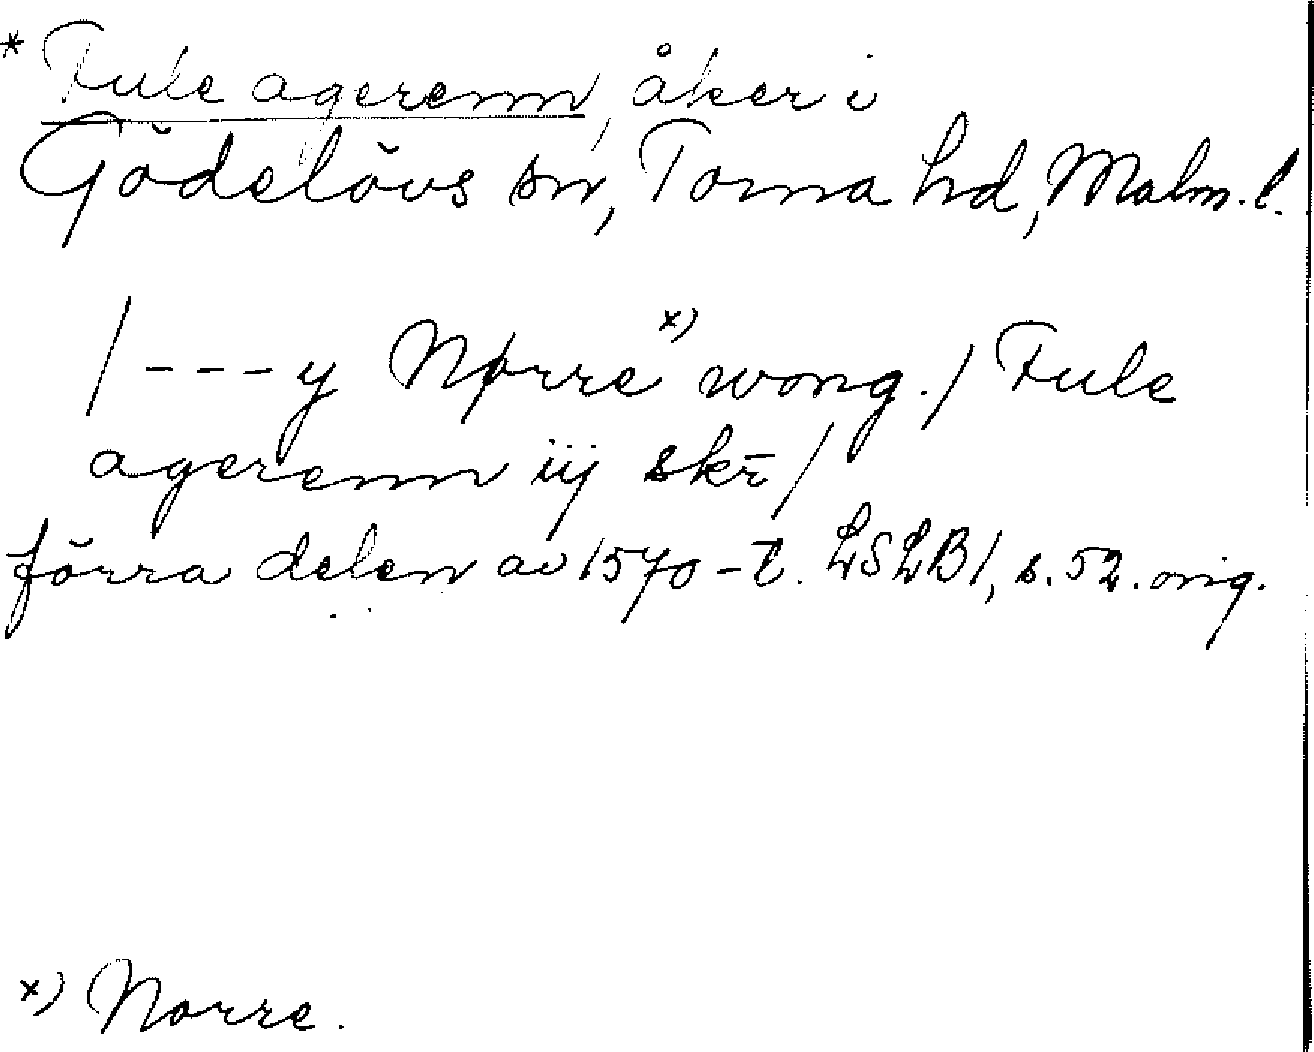 * Fule agerenn, åker i
Gödelövs sn, Torna hd, Malm. l.
/ - - - y Nørre x) wong. / Fule
agerenn iij skr̄ /
förra delen av 1570-t. LSLB1, s. 52. orig.
x) Norre.